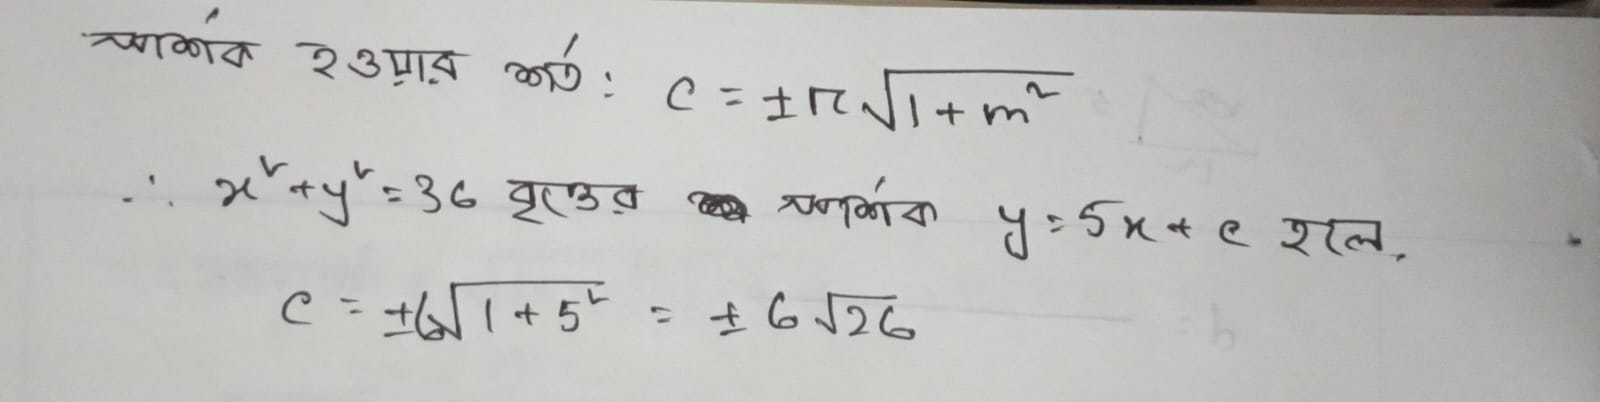 স্পর্শক হওয়ার শর্ত: c = ±r√(1+m²)
∴ x²+y²=36 বৃত্তের স্পর্শক y=5x+c হলে,
c = ±6√(1+5²) = ±6√26